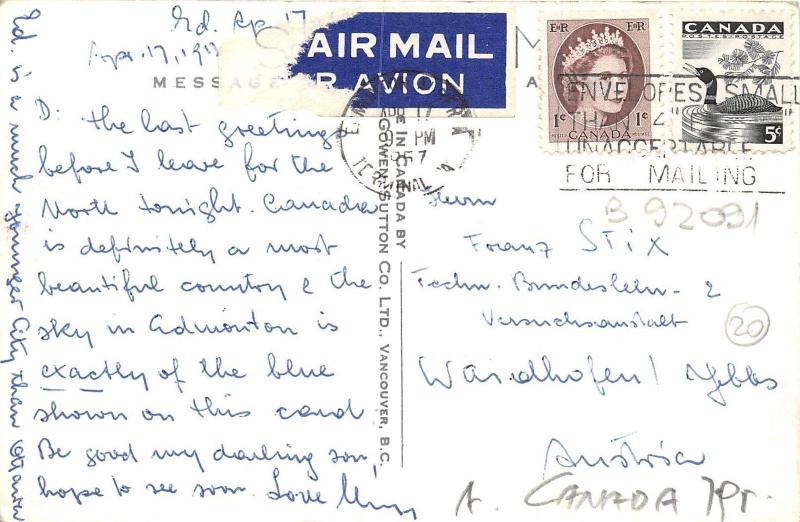 Ed. Ap 17
Apr. 17, 19
AIR MAIL
PAR AVION
MESSAGE
D. the last greetings
before I leave for the
North tonight. Canada
is definitely a most
beautiful country & the
sky in Edmonton is
exactly of the blue
shown on this card
Be good my darling son,
hope to see soon. Love
Ed. is a much younger City than Ottawa
MADE IN CANADA BY
GOWEN SUTTON CO. LTD., VANCOUVER, B.C.
EIIR EIIR
1¢ CANADA 1¢
CANADA
POSTES-POSTAGE
5¢
EDMONTON
APR 17
PM
1957
TERMINAL A
ENVELOPES SMALLER
THAN
UNACCEPTABLE
FOR MAILING
B 92091
Herrn
Franz Stix
Techn. Bundeslehr- &
Versuchsanstalt
Waidhofen / Ybbs
Austria
20
CANADA